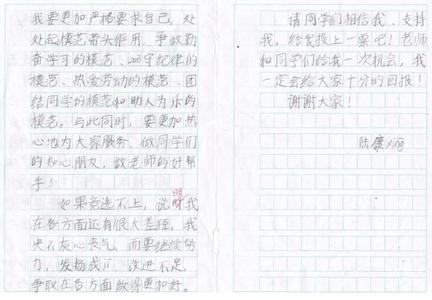 我要更加严格要求自己,处
处起模范带头作用,争做勤
奋学习的模范、遵守纪律的
模范、热爱劳动的模范、团
结同学的模范和助人为乐的
模范。与此同时,要更加热
心地为大家服务,做同学们
的知心朋友,做老师的好帮
手!
如果竞选不上,说明我
在各方面还有很大差距,我
决不灰心丧气,而要继续努
力,发扬成绩,改进不足,
争取在各方面做得更加好。
请同学们相信我、支持
我,给我投上一票吧!老师
和同学们给我一次机会,我
一定会给大家十分的回报!
谢谢大家!
陆康